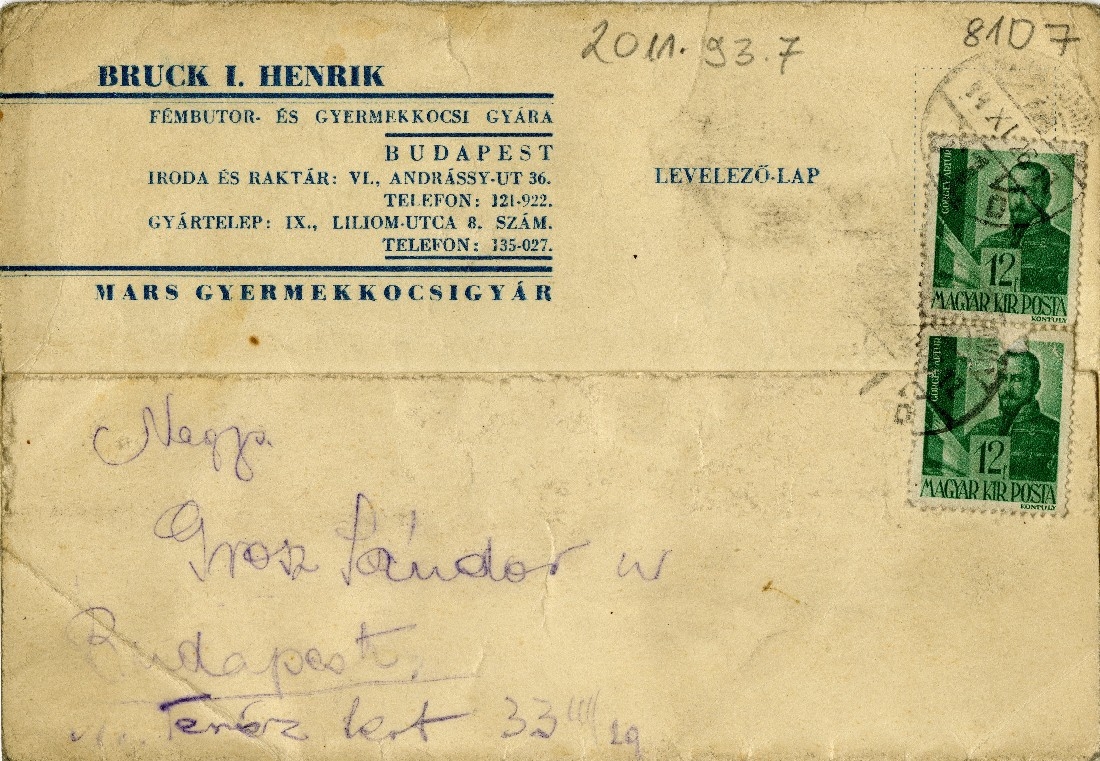 2011.93.7
8107
BRUCK I. HENRIK
FÉMBUTOR- ÉS GYERMEKKOCSI GYÁRA
BUDAPEST
IRODA ÉS RAKTÁR: VI., ANDRÁSSY-UT 36.
TELEFON: 121-922.
GYÁRTELEP: IX., LILIOM-UTCA 8. SZÁM.
TELEFON: 135-027.
MARS GYERMEKKOCSIGYÁR
LEVELEZŐ-LAP
GÖRGEY ARTUR
12f
MAGYAR KIR POSTA
KONTULY
GÖRGEY ARTUR
12f
MAGYAR KIR POSTA
KONTULY
Nagys.
Grosz Sándor
Budapest,
kert 33